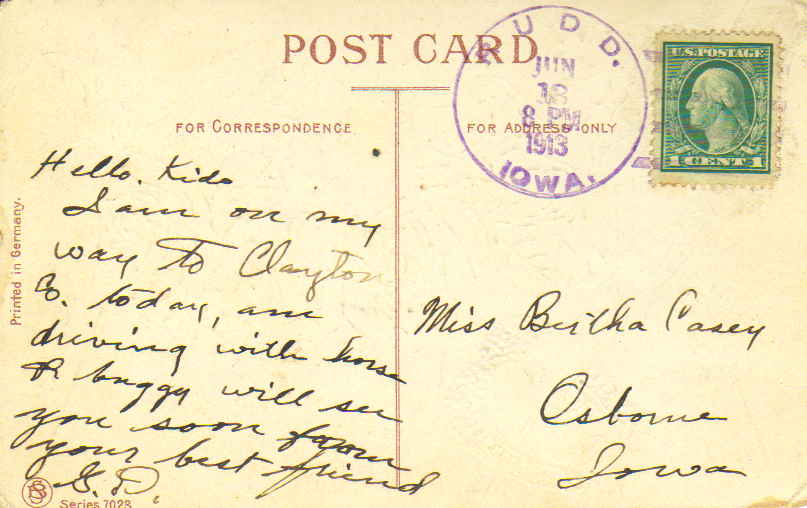 POST CARD
RUDD.
JUN
18
8 PM
1913
IOWA.
U.S. POSTAGE
1 CENT 1
FOR CORRESPONDENCE
FOR ADDRESS ONLY
Hello. Kido
I am on my
way to Clayton
Co. today, am
driving with horse
& buggy will see
you soon from
your best friend
G.D.
Miss Bertha Casey
Osborne
Iowa
Printed in Germany.
Series 7028